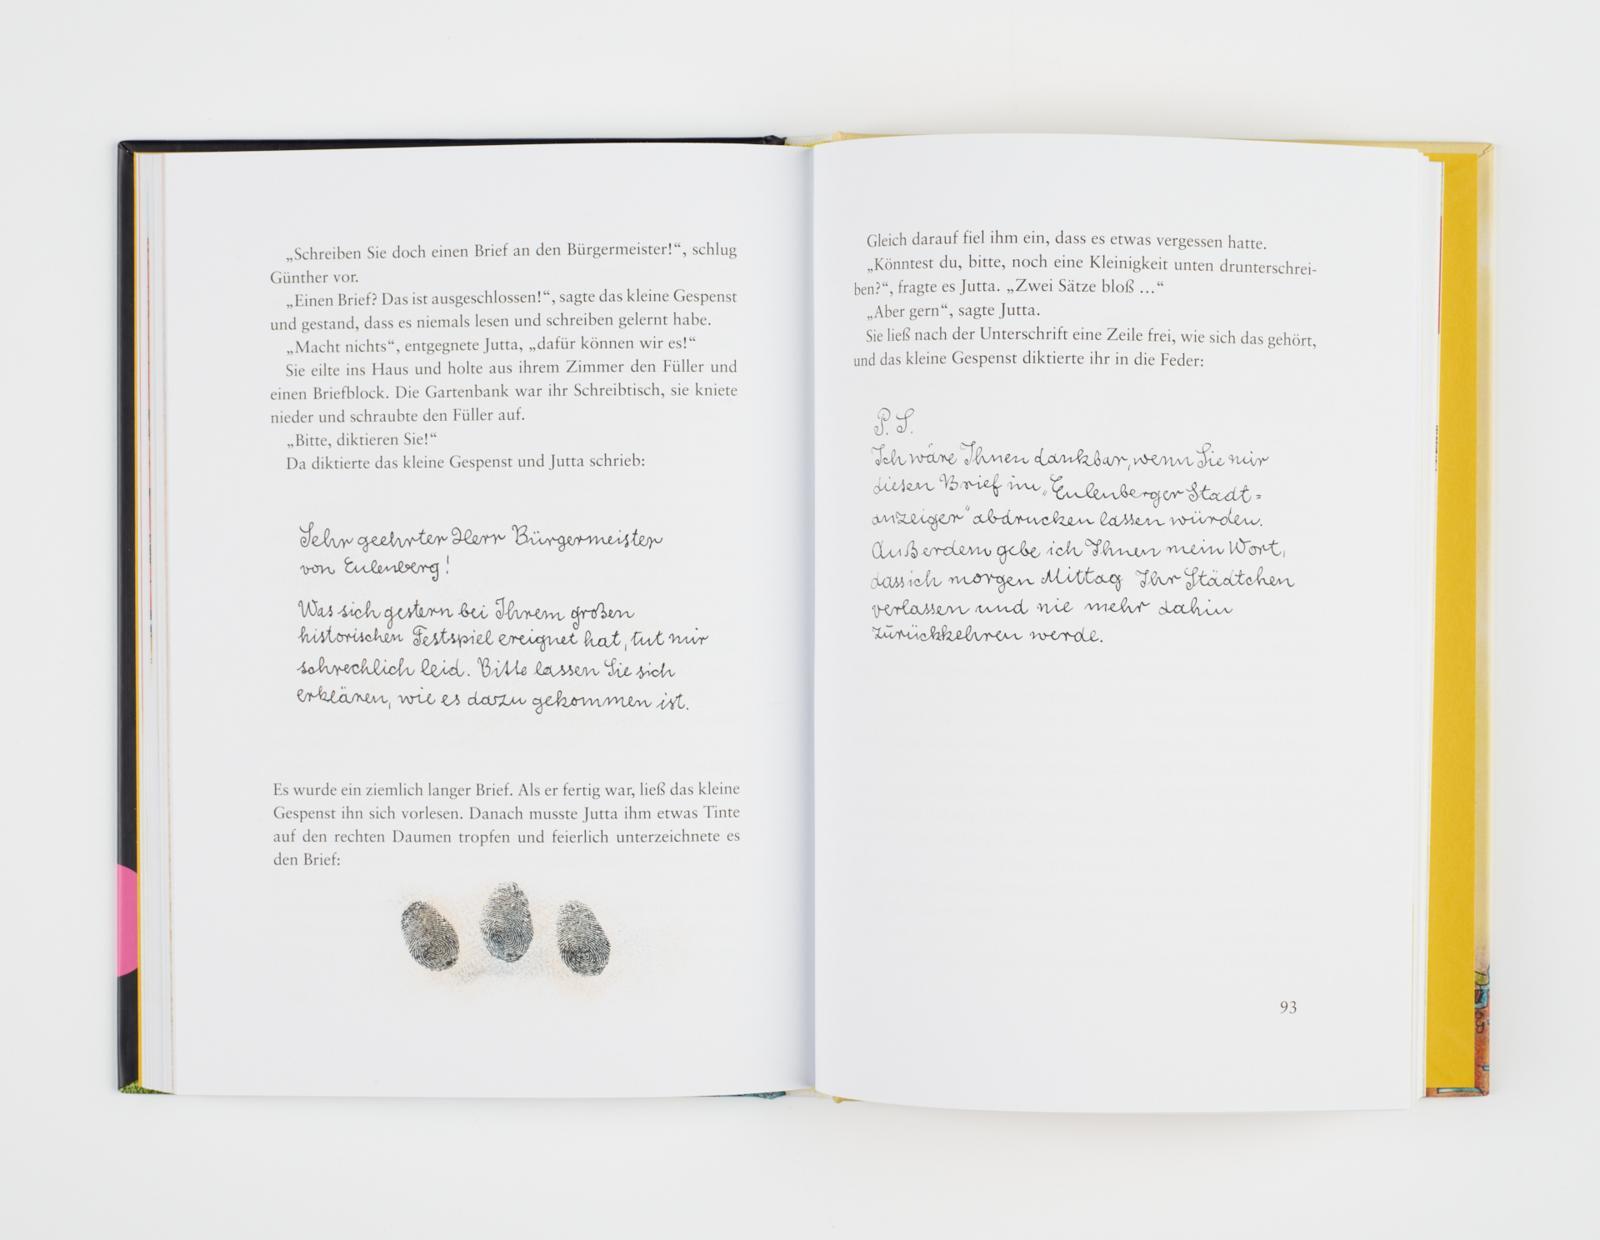 „Schreiben Sie doch einen Brief an den Bürgermeister!“, schlug
Günther vor.
„Einen Brief? Das ist ausgeschlossen!“, sagte das kleine Gespenst
und gestand, dass es niemals lesen und schreiben gelernt habe.
„Macht nichts“, entgegnete Jutta, „dafür können wir es!“
Sie eilte ins Haus und holte aus ihrem Zimmer den Füller und
einen Briefblock. Die Gartenbank war ihr Schreibtisch, sie kniete
nieder und schraubte den Füller auf.
„Bitte, diktieren Sie!“
Da diktierte das kleine Gespenst und Jutta schrieb:
Sehr geehrter Herr Bürgermeister
von Eulenberg!
Was sich gestern bei Ihrem großen
historischen Festspiel ereignet hat, tut mir
schrecklich leid. Bitte lassen Sie sich
erklären, wie es dazu gekommen ist.
Es wurde ein ziemlich langer Brief. Als er fertig war, ließ das kleine
Gespenst ihn sich vorlesen. Danach musste Jutta ihm etwas Tinte
auf den rechten Daumen tropfen und feierlich unterzeichnete es
den Brief:
Gleich darauf fiel ihm ein, dass es etwas vergessen hatte.
„Könntest du, bitte, noch eine Kleinigkeit unten drunterschrei-
ben?“, fragte es Jutta. „Zwei Sätze bloß …“
„Aber gern“, sagte Jutta.
Sie ließ nach der Unterschrift eine Zeile frei, wie sich das gehört,
und das kleine Gespenst diktierte ihr in die Feder:
P. S.
Ich wäre Ihnen dankbar, wenn Sie mir
diesen Brief im „Eulenberger Stadt=
anzeiger“ abdrucken lassen würden.
Außerdem gebe ich Ihnen mein Wort,
dass ich morgen Mittag Ihr Städtchen
verlassen und nie mehr dahin
zurückkehren werde.
93